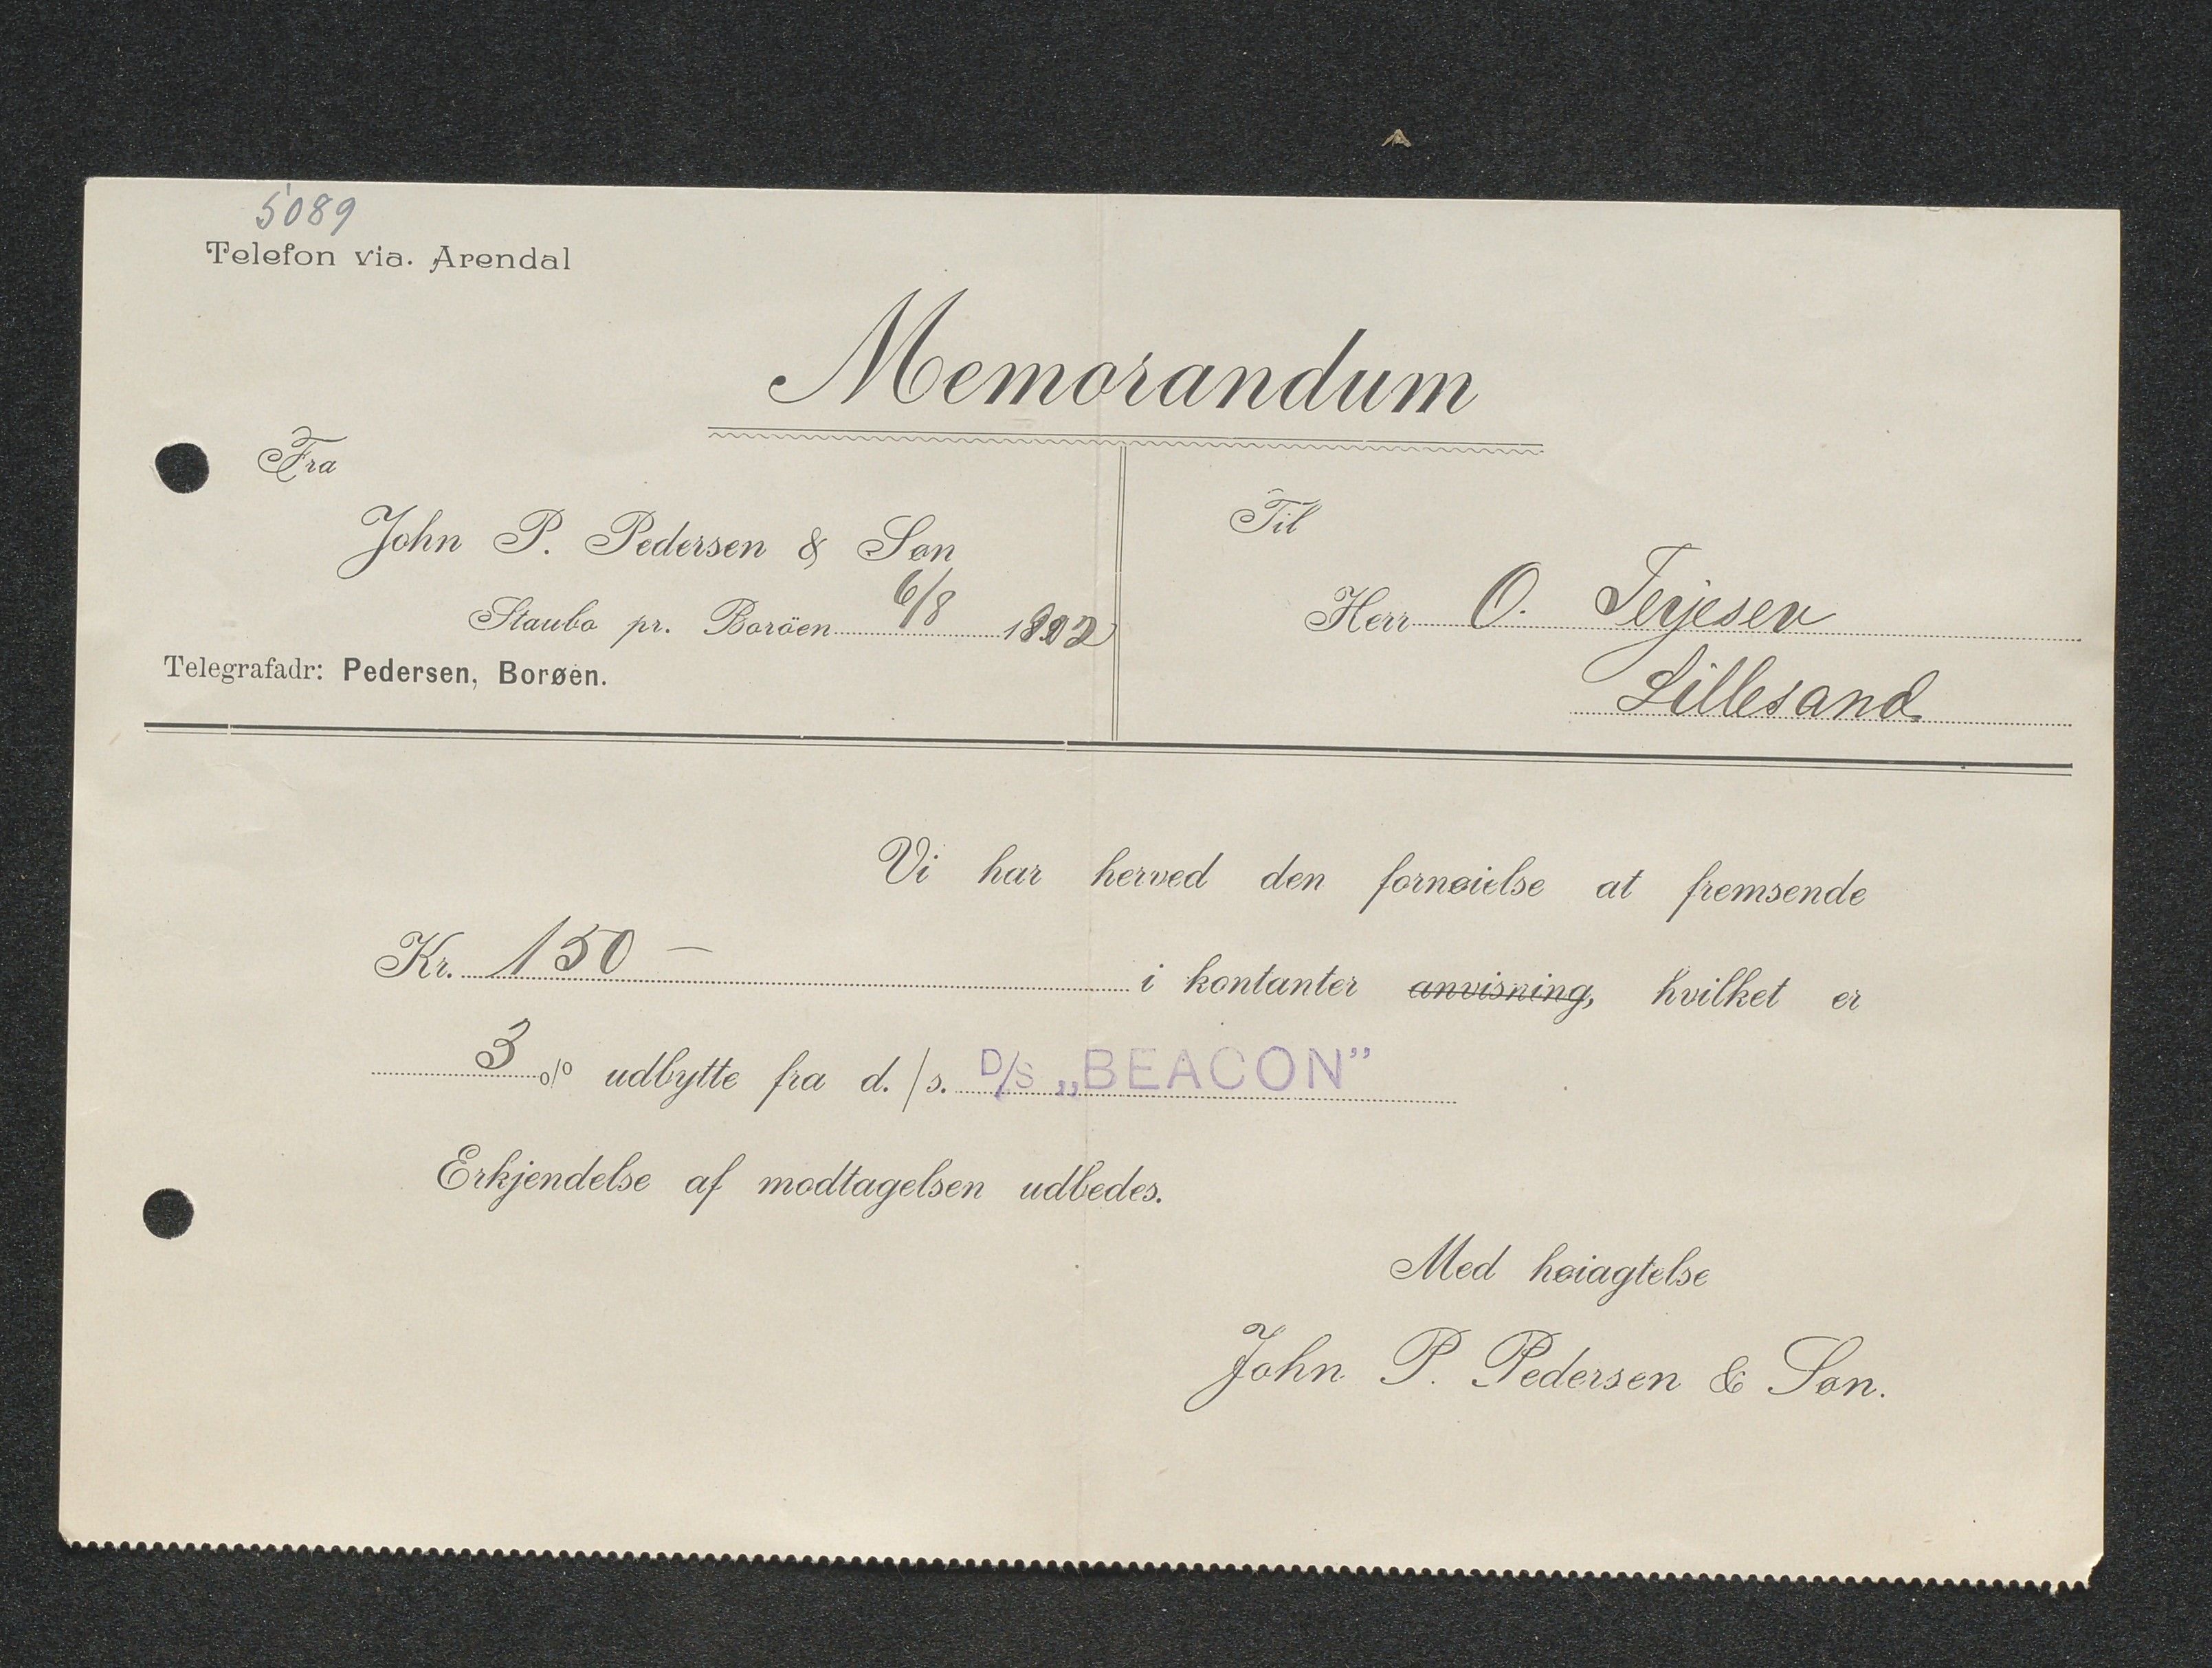 5089
Telefon via. Arendal
Memorandum
Fra
John P. Pedersen & Søn
Staubo pr. Borøen 6/8
Telegrafadr: Pedersen, Borøen.
Til
Herr O. Terjesen
Lillesand
Vi har herved den fornøielse at fremsende
Kr. 150 — i kontanter anvisning, hvilket er
3 o/o udbytte fra d./s. D/S „BEACON”
Erkjendelse af modtagelsen udbedes.
Med høiagtelse
John P. Pedersen & Søn.